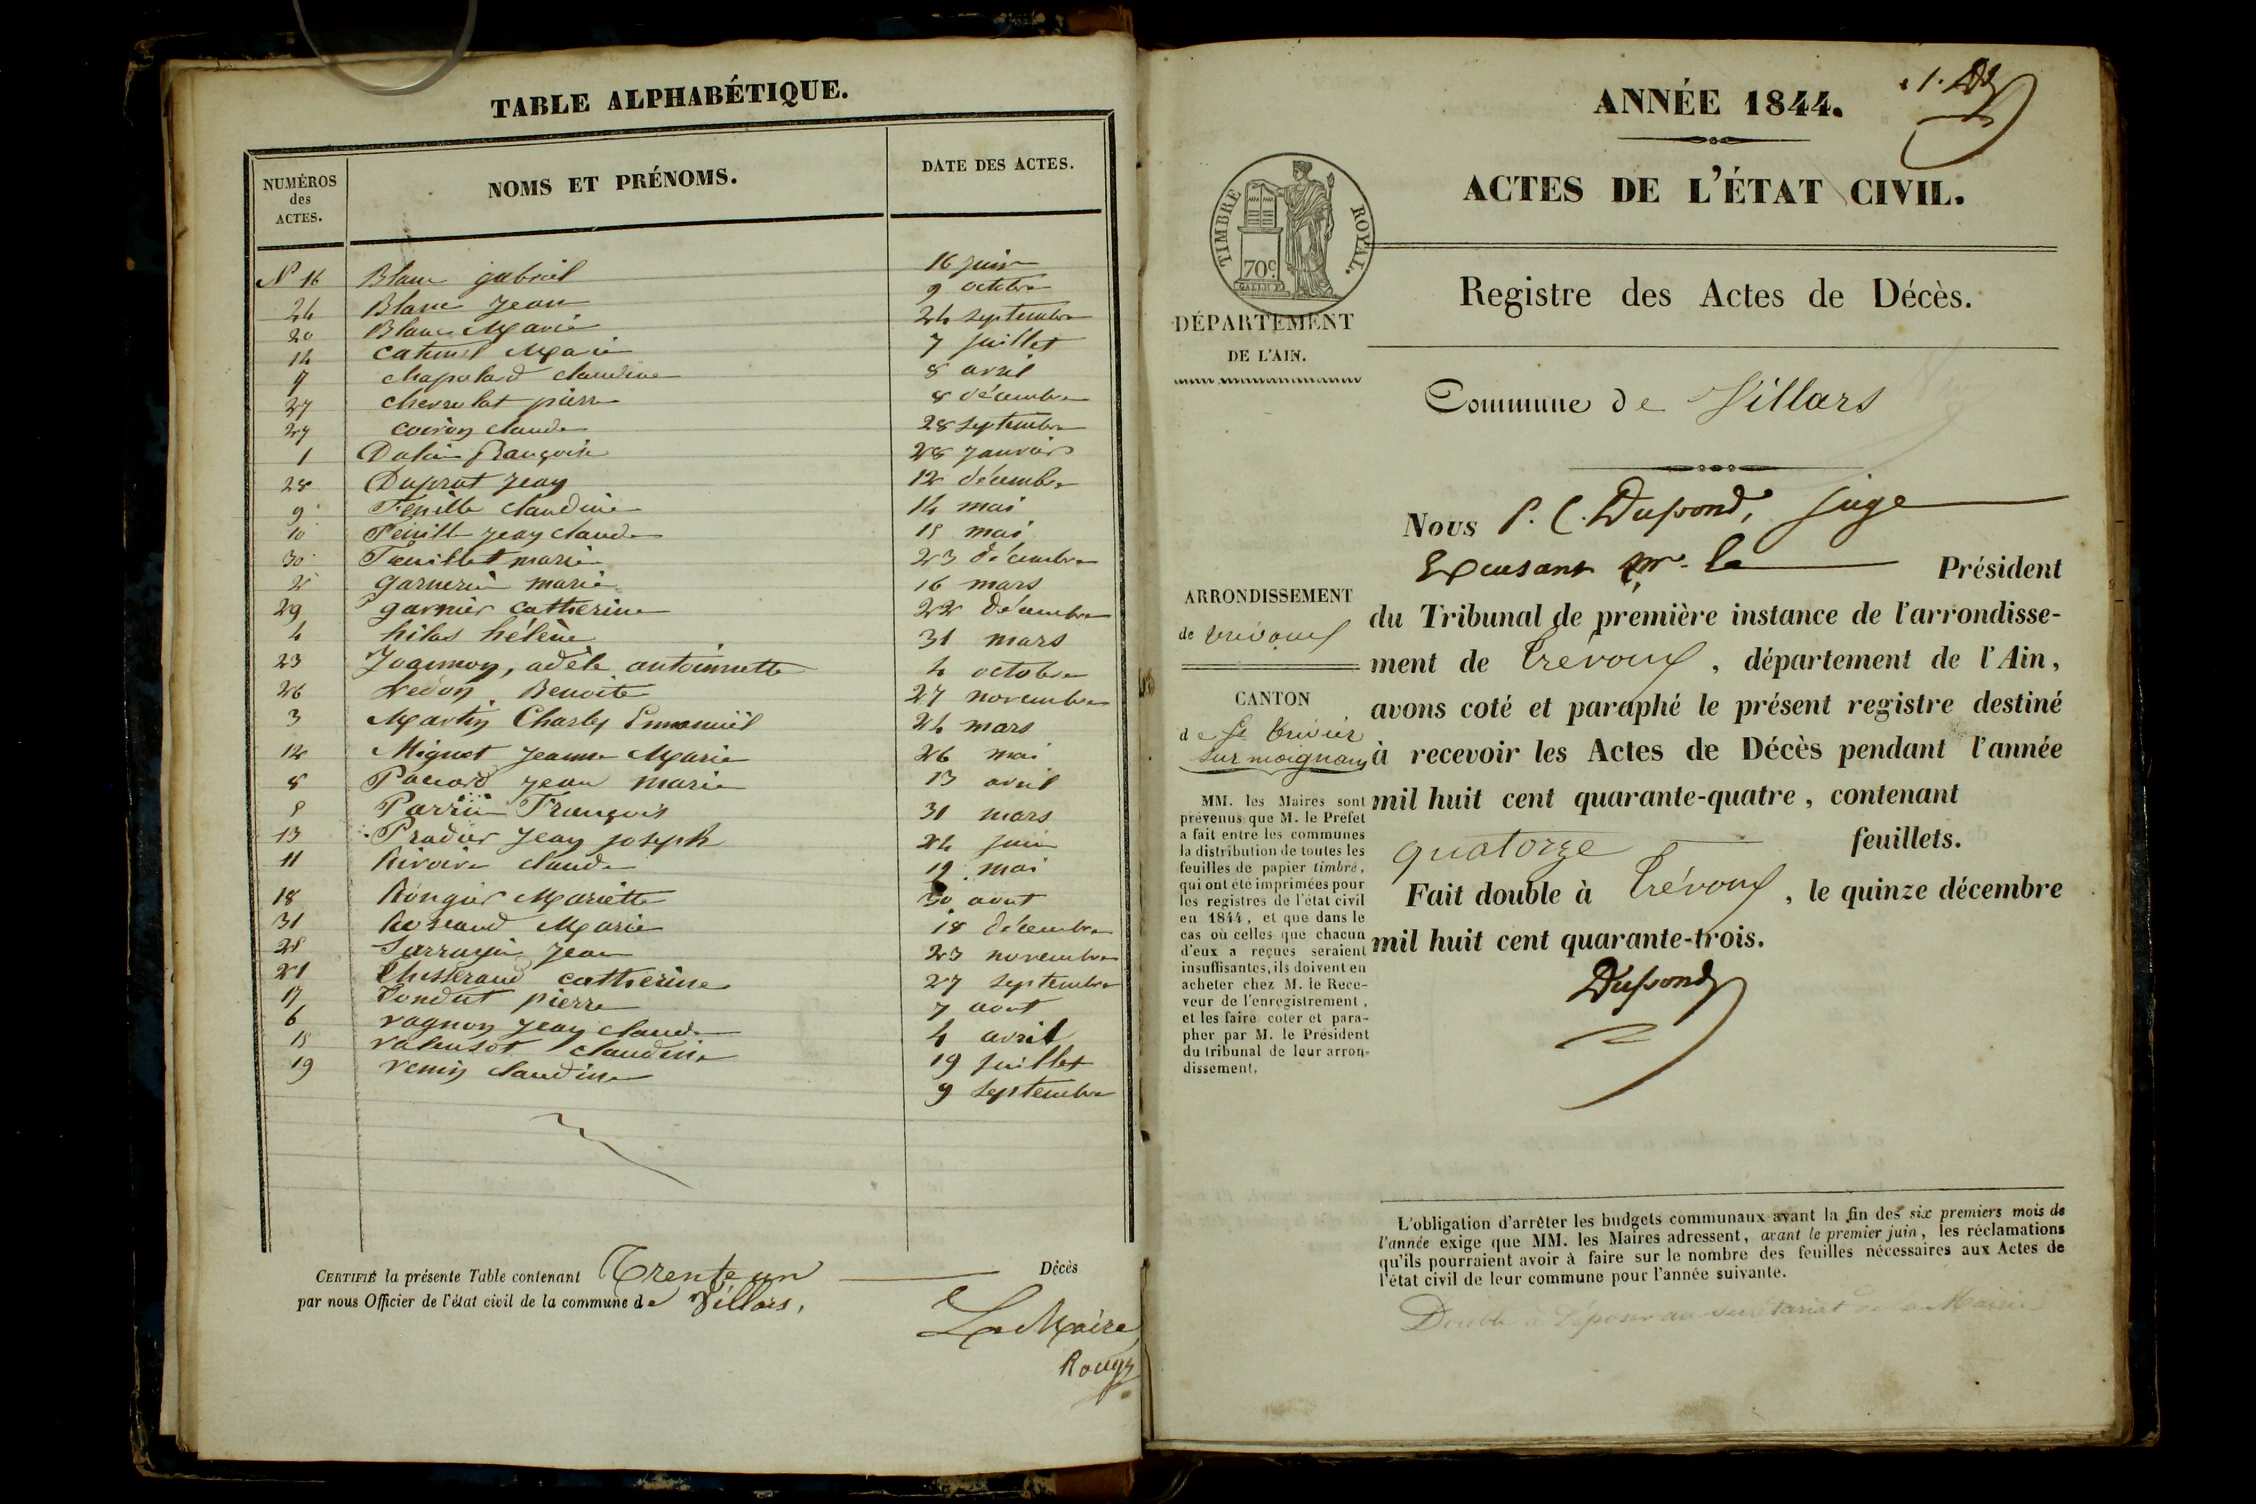 TABLE ALPHABÉTIQUE.
NUMÉROS
des
ACTES.
NOMS ET PRÉNOMS.
DATE DES ACTES.
N° 16 Blanc gabriel 16 juin
24 Blanc Jean 9 octobre
20 Blanc Marie 24 septembre
14 Marie 7 juillet
7 chapolard claudine 8 avril
27 chevrolat pierre 8 décembre
27 coiron claude 28 septembre
1 Dalin françoise 28 janvier
28 Duprat jean 12 décembre
9 Feuille claudine 14 mai
10 Feuille jean claude 15 mai
30 Feuillet marie 23 décembre
2 marie 16 mars
29 garnier catherine 22 décembre
4 hilas hélène 31 mars
23 Jogemon, adèle antoinnette 4 octobre
26 Benoite 27 novembre
3 Martin Charles Emmanuël 24 mars
12 Miguet jeanne Marie 26 mai
8 Pacard jean marie 13 avril
5 Parrin François 31 mars
13 Pradier jean joseph 24 juin
11 Rivoire claude 19 mai
18 Rongier Mariette 30 aout
31 Marie 18 décembre
25 Sarrazin jean 23 novembre
21 Thisserand catherine 27 septembre
17 Tondut pierre 7 aout
6 vagnon jean claude 4 avril
15 valensot claudine 19 juillet
19 venin claudine 9 septembre
CERTIFIÉ la présente Table contenant Trente un Décès
par nous Officier de l'état civil de la commune de Villars.
Le Maire
Rougy
1.
ANNÉE 1844.
ACTES DE L'ÉTAT CIVIL.
TIMBRE ROYAL.
70c
Registre des Actes de Décès.
DÉPARTEMENT
DE L'AIN.
Commune de Villars
Nous P. C. Dupond, juge
Excusant Mr. le Président
du Tribunal de première instance de l'arrondisse-
ment de Trévoux, département de l'Ain,
avons coté et paraphé le présent registre destiné
à recevoir les Actes de Décès pendant l'année
mil huit cent quarante-quatre, contenant
quatorze feuillets.
Fait double à Trévoux, le quinze décembre
mil huit cent quarante-trois.
Dupond
ARRONDISSEMENT
de trévoux
CANTON
de St trivier
sur moignans
MM. les Maires sont
prévenus que M. le Préfet
a fait entre les communes
la distribution de toutes les
feuilles de papier timbré,
qui ont été imprimées pour
les registres de l'état civil
en 1844, et que dans le
cas où celles que chacun
d'eux a reçues seraient
insuffisantes, ils doivent en
acheter chez M. le Rece-
veur de l'enregistrement,
et les faire coter et para-
pher par M. le Président
du tribunal de leur arron-
dissement.
L'obligation d'arrêter les budgets communaux avant la fin des six premiers mois de
l'année exige que MM. les Maires adressent, avant le premier juin, les réclamations
qu'ils pourraient avoir à faire sur le nombre des feuilles nécessaires aux Actes de
l'état civil de leur commune pour l'année suivante.
Double à déposer au secrétariat de la Mairie